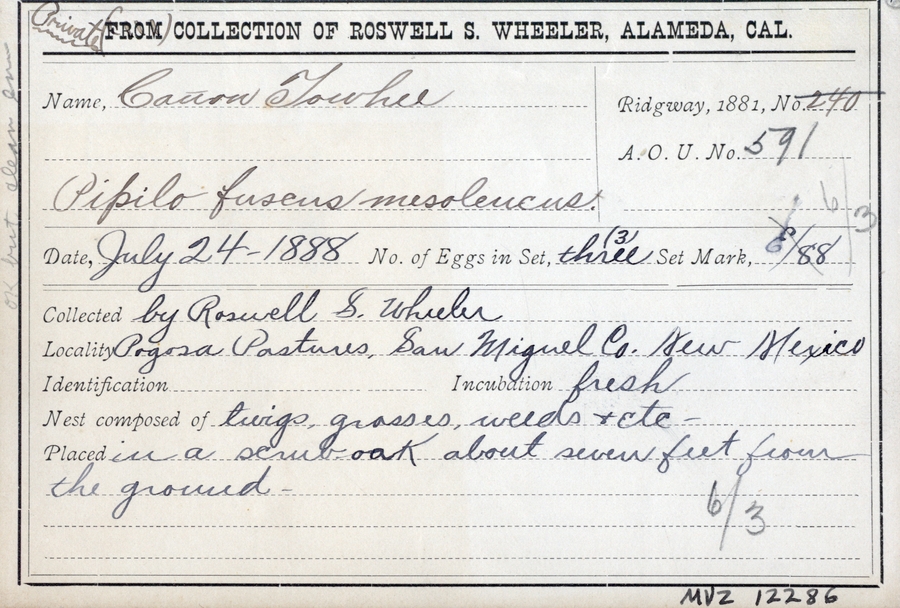 (Private)
FROM COLLECTION OF ROSWELL S. WHEELER, ALAMEDA, CAL.
Name, Cañon Towhee
Ridgway, 1881, No. 240
A. O. U. No. 591
Pipilo fuscus mesoleucus.
6/3
Date, July 24-1888 No. of Eggs in Set, three (3) Set Mark, /88
Collected by Roswell S. Wheeler
Locality Pogosa Pastures, San Miguel Co. New Mexico
Identification Incubation fresh
Nest composed of twigs, grasses, weeds & etc -
Placed in a scrub-oak about seven feet from
the ground -
6/3
MVZ 12286
OK but clean em